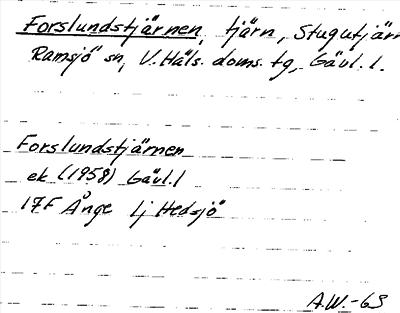 Forslundstjärnen, tjärn, Stugutjärn
Ramsjö sn, V. Häls. doms. tg, Gävl. l.
Forslundstjärnen
ek (1958) Gävl. l
17F Ånge lj Hedsjö
A.W.-63